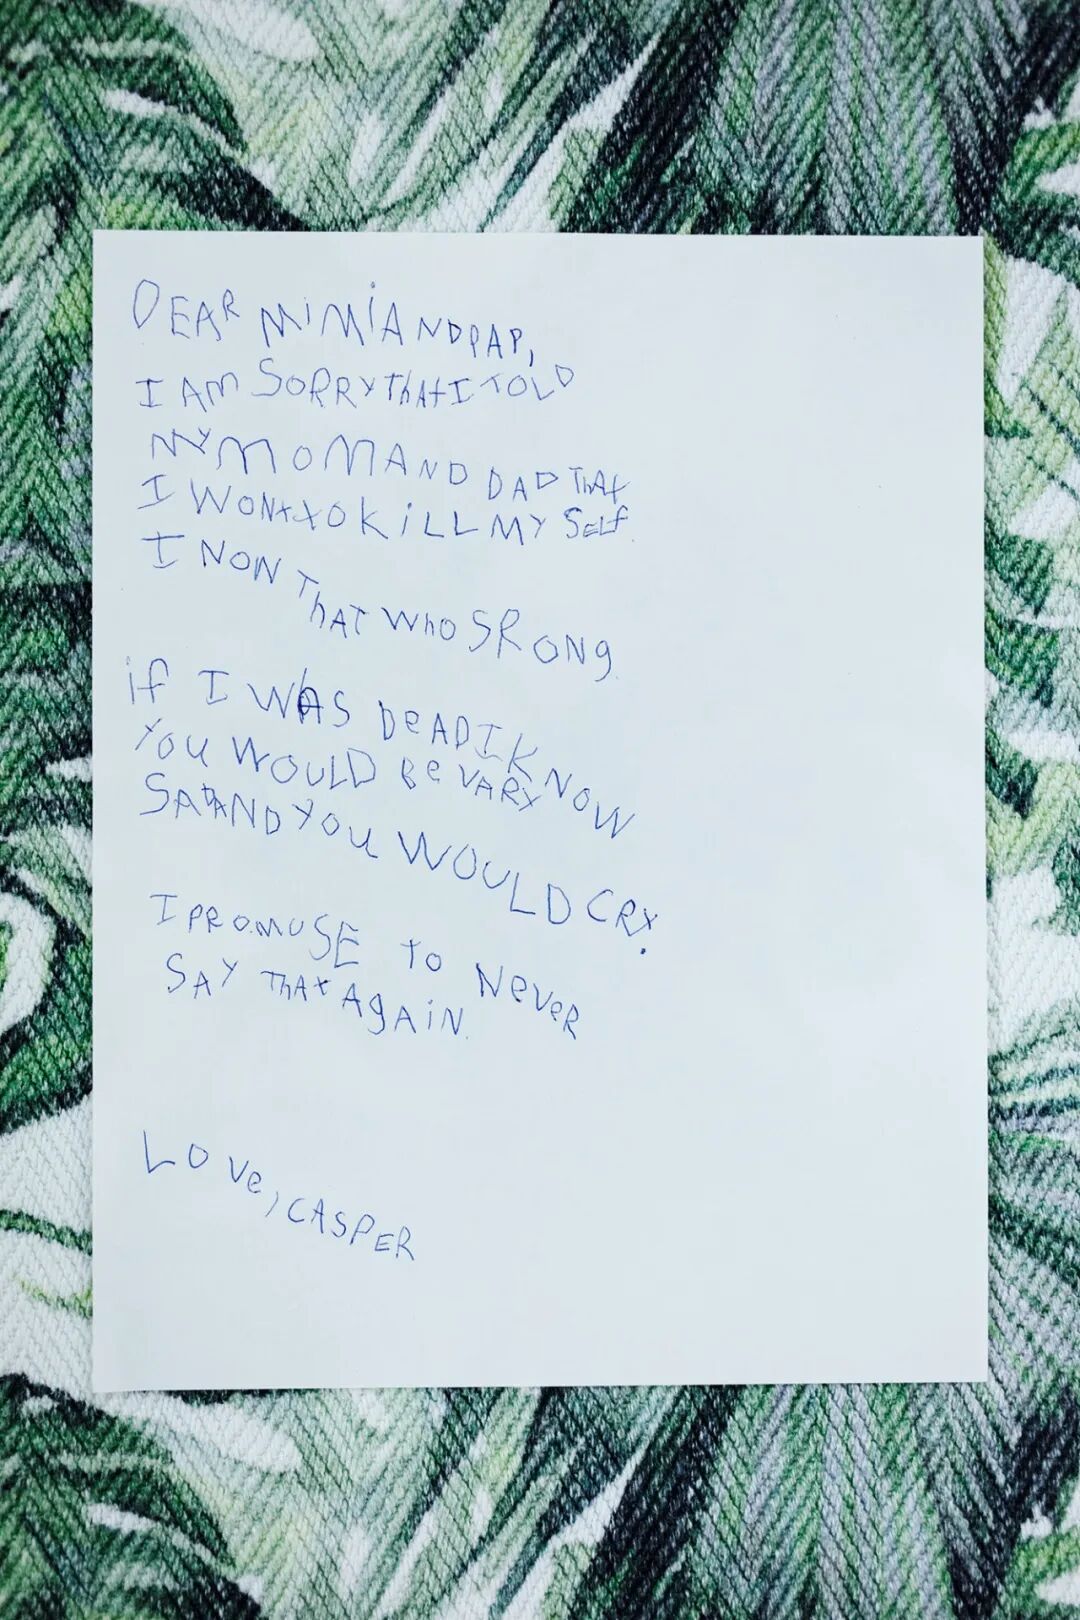 DEAR MIMI AND PAP,
I AM SORRY THAT I TOLD
MY MOM AND DAD THAT
I WONT TO KILL MY SELF.
I NOW THAT WHO SRONG.
if I WAS DEAD I KNOW
YOU WOULD Be VARY
SAD AND YOU WOULD CRY.
I PROMUSE TO NeVeR
SAY THAT AgAiN.
LOVe, CASPER